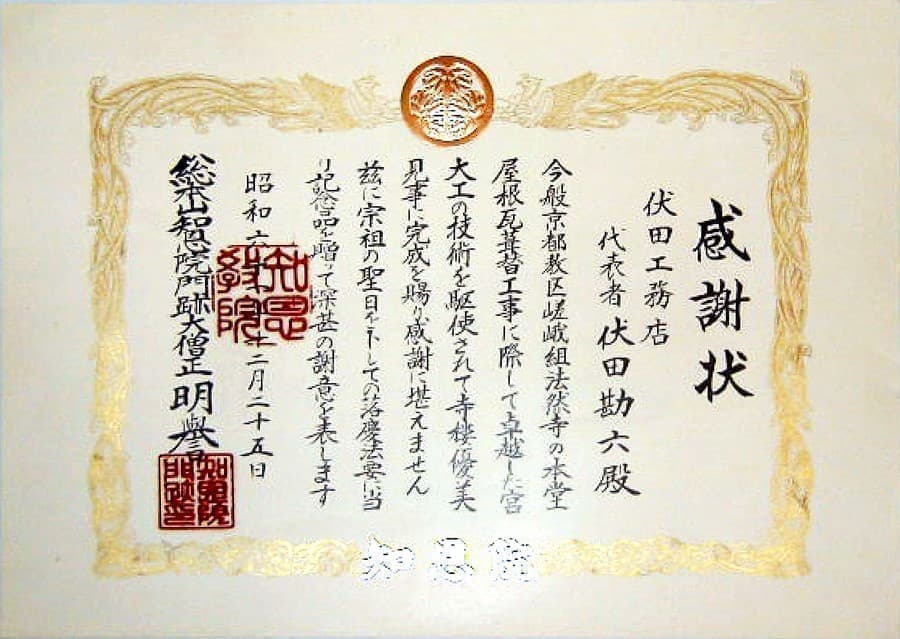 感謝状
伏田工務店
代表者 伏田勘六殿
今般京都教区嵯峨組法然寺の本堂
屋根瓦葺替工事に際して卓越した宮
大工の技術を駆使されて寺楼優美
見事に完成を賜り感謝に堪えません
茲に宗祖の聖日を卜しての落慶法要に当
り記念品を贈って深甚の謝意を表します
昭和六十 年 二月二十五日
総本山知恩院門跡大僧正 明誉
知恩教院
知恩院門跡之印
知恩院